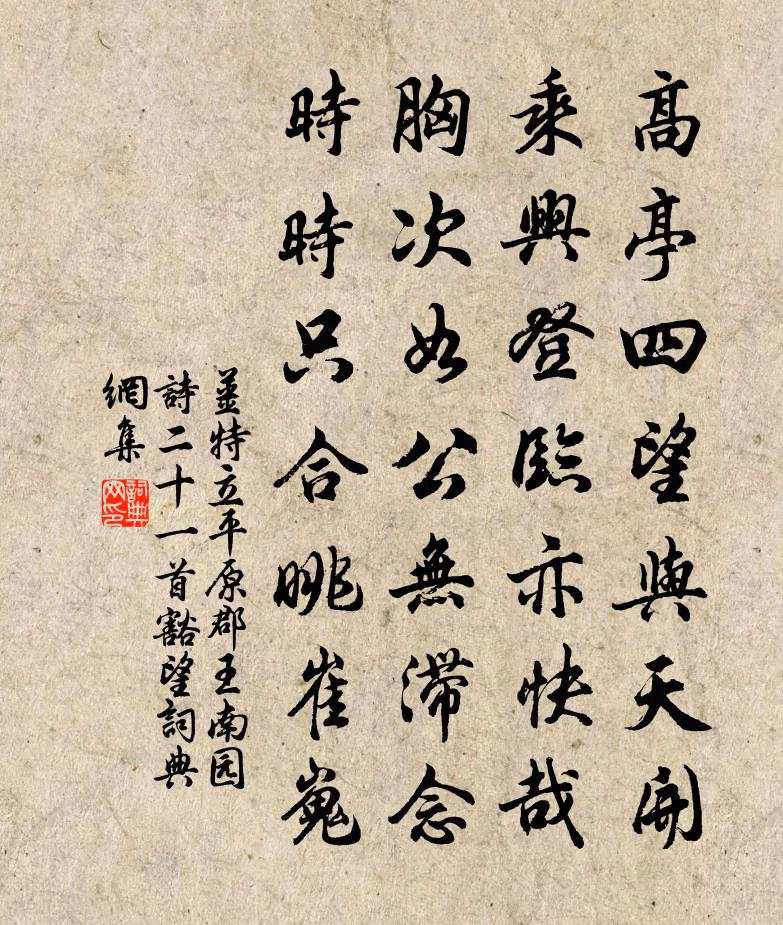 高亭四望與天開
乘興登臨亦快哉
胸次如公無滯念
時時只合眺崔嵬
姜特立平原郡王南园
詩二十一首豁望詞典
網集
詞典
网印